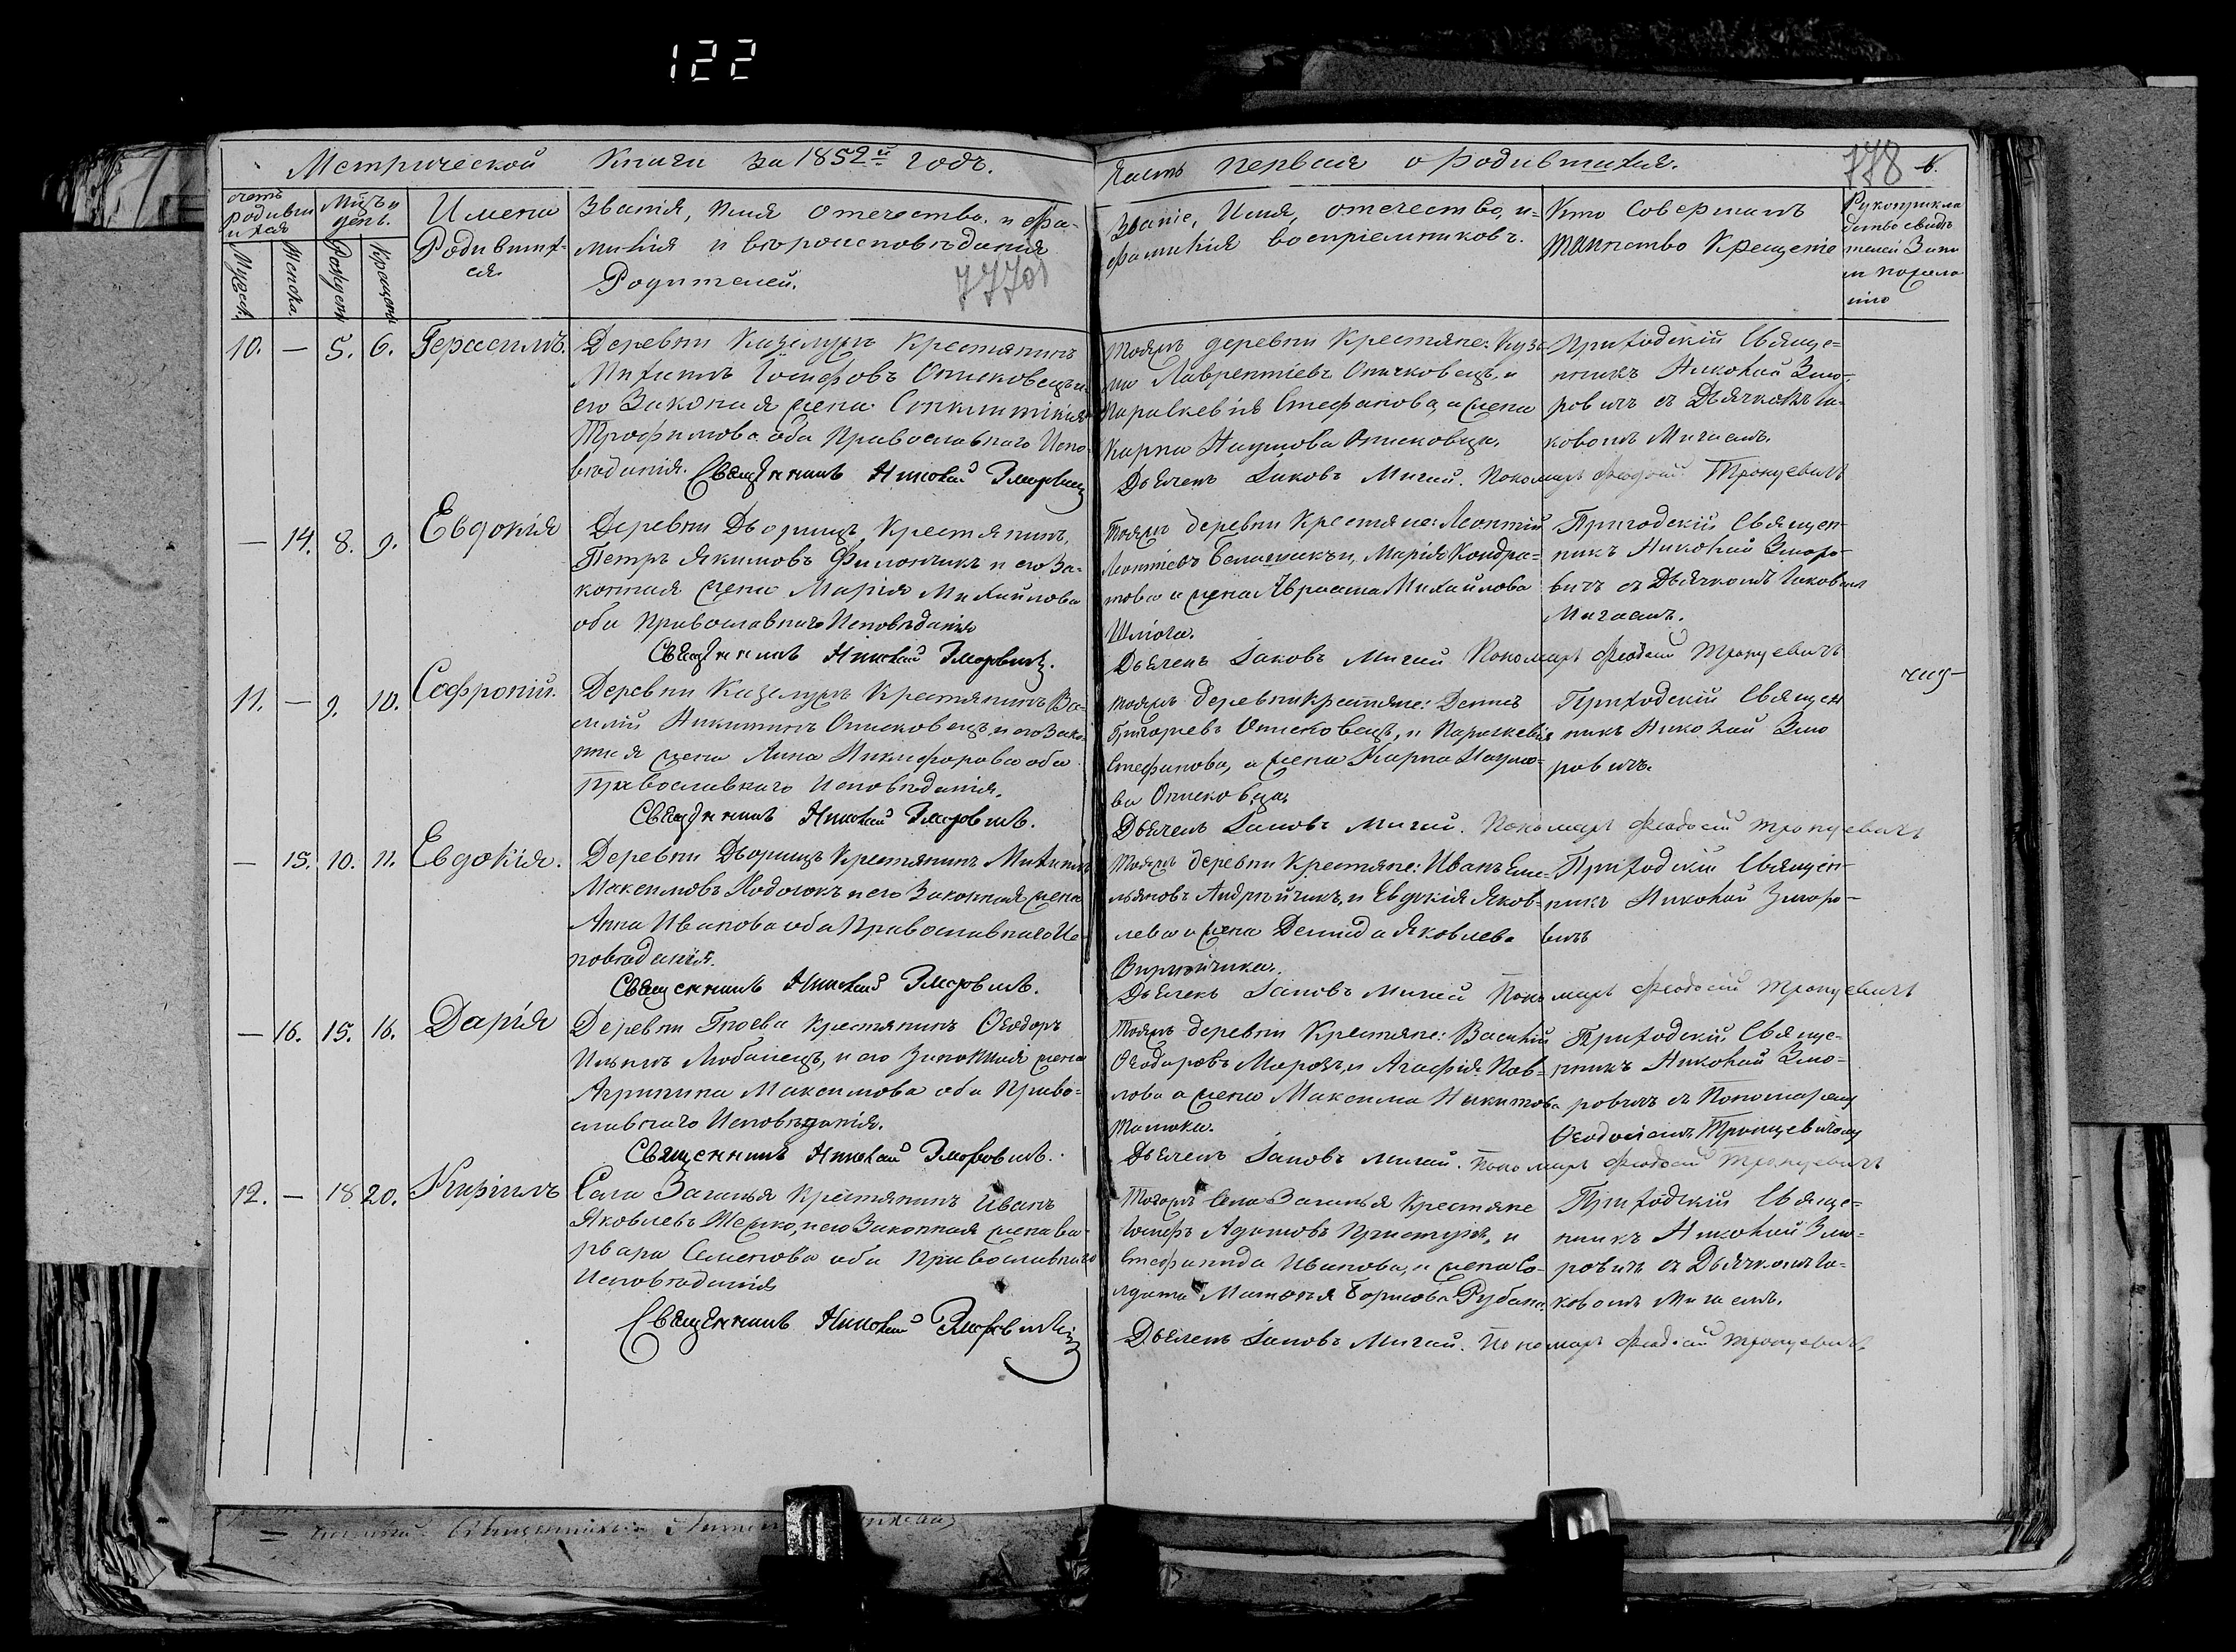 122
Метрической Книги за 1852й годъ.
Часть первая о родившихся.
778
счетъ родивши
хся
Мцъ и
день.
Имена
Родивших-
ся.
Званія, Имя отечество, и фа-
милія и вероисповѣданія
Родителей.
Званіе, Имя, отечество, и
фамилія воспріемниковъ.
Кто совершалъ
таинство Крещенія
Рукоприкла
дство свидѣ
телей Запи
си по
Мужеск.
Женска.
Рожденія
Крещенія
10. — 5. 6. Герасимъ.
Деревни Кацелужъ Крестянинъ
Михаилъ Іосифовъ Онисковецъ и
его Законая жена
Трофимова оба Православнаго Испо-
вѣданія. Священникъ Николай Зморовичъ
Тояжъ деревни Крестяне: Кузь-
ма Лаврентіевъ Онисковецъ, и
Параскевія Стефанова, а жена
Карпа Наумова Онисковца.
Дьячекъ Іаковъ Мигай. Пономарь Феодосій Тронцевичъ
Приходскій Священ-
никъ Николай Змо-
ровичъ съ Дьячкомъ Іа-
ковомъ Мигаемъ.
— 14. 8. 9. Евдокія
Деревни Дворищъ Крестянинъ,
Петръ Якимовъ Филончикъ и его За-
конная жена Марія Михайлова
оба Православнаго Исповѣданія
Священникъ Николай Зморовичъ.
Тояжъ деревни Крестяне: Леонтій
Леонтіевъ и, Марія Кондра-
това а жена Авраама Михайлова
Шліота.
Дьячекъ Іаковъ Мигай Пономарь Феодосій Тронцевичъ
Приходскій Священ-
никъ Николай Зморо-
вичъ съ Дьячкомъ Іаковомъ
Мигаемъ.
11. — 9. 10. Софроній.
Деревни Кацелужъ Крестянинъ Ва-
силій Никитинъ Онисковецъ и его Зако-
нная жена Анна Никифорова оба
Православнаго Исповѣданія.
Священникъ Николай Зморовичъ.
Тояжъ деревни Крестяне: Денисъ
Григорьевъ Онисковецъ, и Параскевія
Стефанова, а жена Карпа Наумо-
ва Онисковца.
Дьячекъ Іаковъ Мигай. Пономарь Феодосій Тронцевичъ
Приходскій Священ
никъ Николай Змо
ровичъ.
— 15. 10. 11. Евдокія.
Деревни Дворищъ Крестянинъ Михаилъ
Максимовъ Ходосюкъ и его Законная жена
Анна Иванова оба Православнаго Ис-
повѣданія.
Священникъ Николай Зморовичъ.
Тояжъ деревни Крестяне: Иванъ Еме-
льяновъ Андрѣйчикъ, и Евдокія Яков-
лева а жена Демида Яковлева
Дьячекъ Іаковъ Мигай Пономарь Феодосій Тронцевичъ
Приходскій Священ-
никъ Николай Зморо-
вичъ
— 16. 15. 16. Дарія
Деревни Гноева Крестянинъ Ѳеодоръ
Ильинъ Любанецъ, и его Законная жена
Агрипина Максимова оба Право-
славнаго Исповѣданія.
Священникъ Николай Зморовичъ.
Тояжъ деревни Крестяне: Василій
Ѳеодоровъ Морозъ, и Агафія Пав-
лова а жена Максима Никитова
Дьячекъ Іаковъ Мигай. Пономарь Феодосій Тронцевичъ
Приходскій Свяще-
нникъ Николай Змо-
ровичъ съ Пономаремъ
Ѳеодосіемъ Тронцевичомъ
12. — 18 20. Кирилъ
Села Заганья Крестянинъ Иванъ
Яковлевъ Жешко, и его Законная жена Ва-
рвара Семенова оба Православнаго
Исповѣданія
Священникъ Николай Зморовичъ
Тогожъ Села Заганья Крестяне
Іосифъ Адамовъ и
Стефанида Иванова, а жена Со-
лдата Матвѣя Борисова Рубана.
Дьячекъ Іаковъ Мигай. Пономарь Феодосій Тронцевичъ
Приходскій Свяще-
нникъ Николай Змо-
ровичъ съ Дьячкомъ Іа-
ковомъ Мигаемъ.